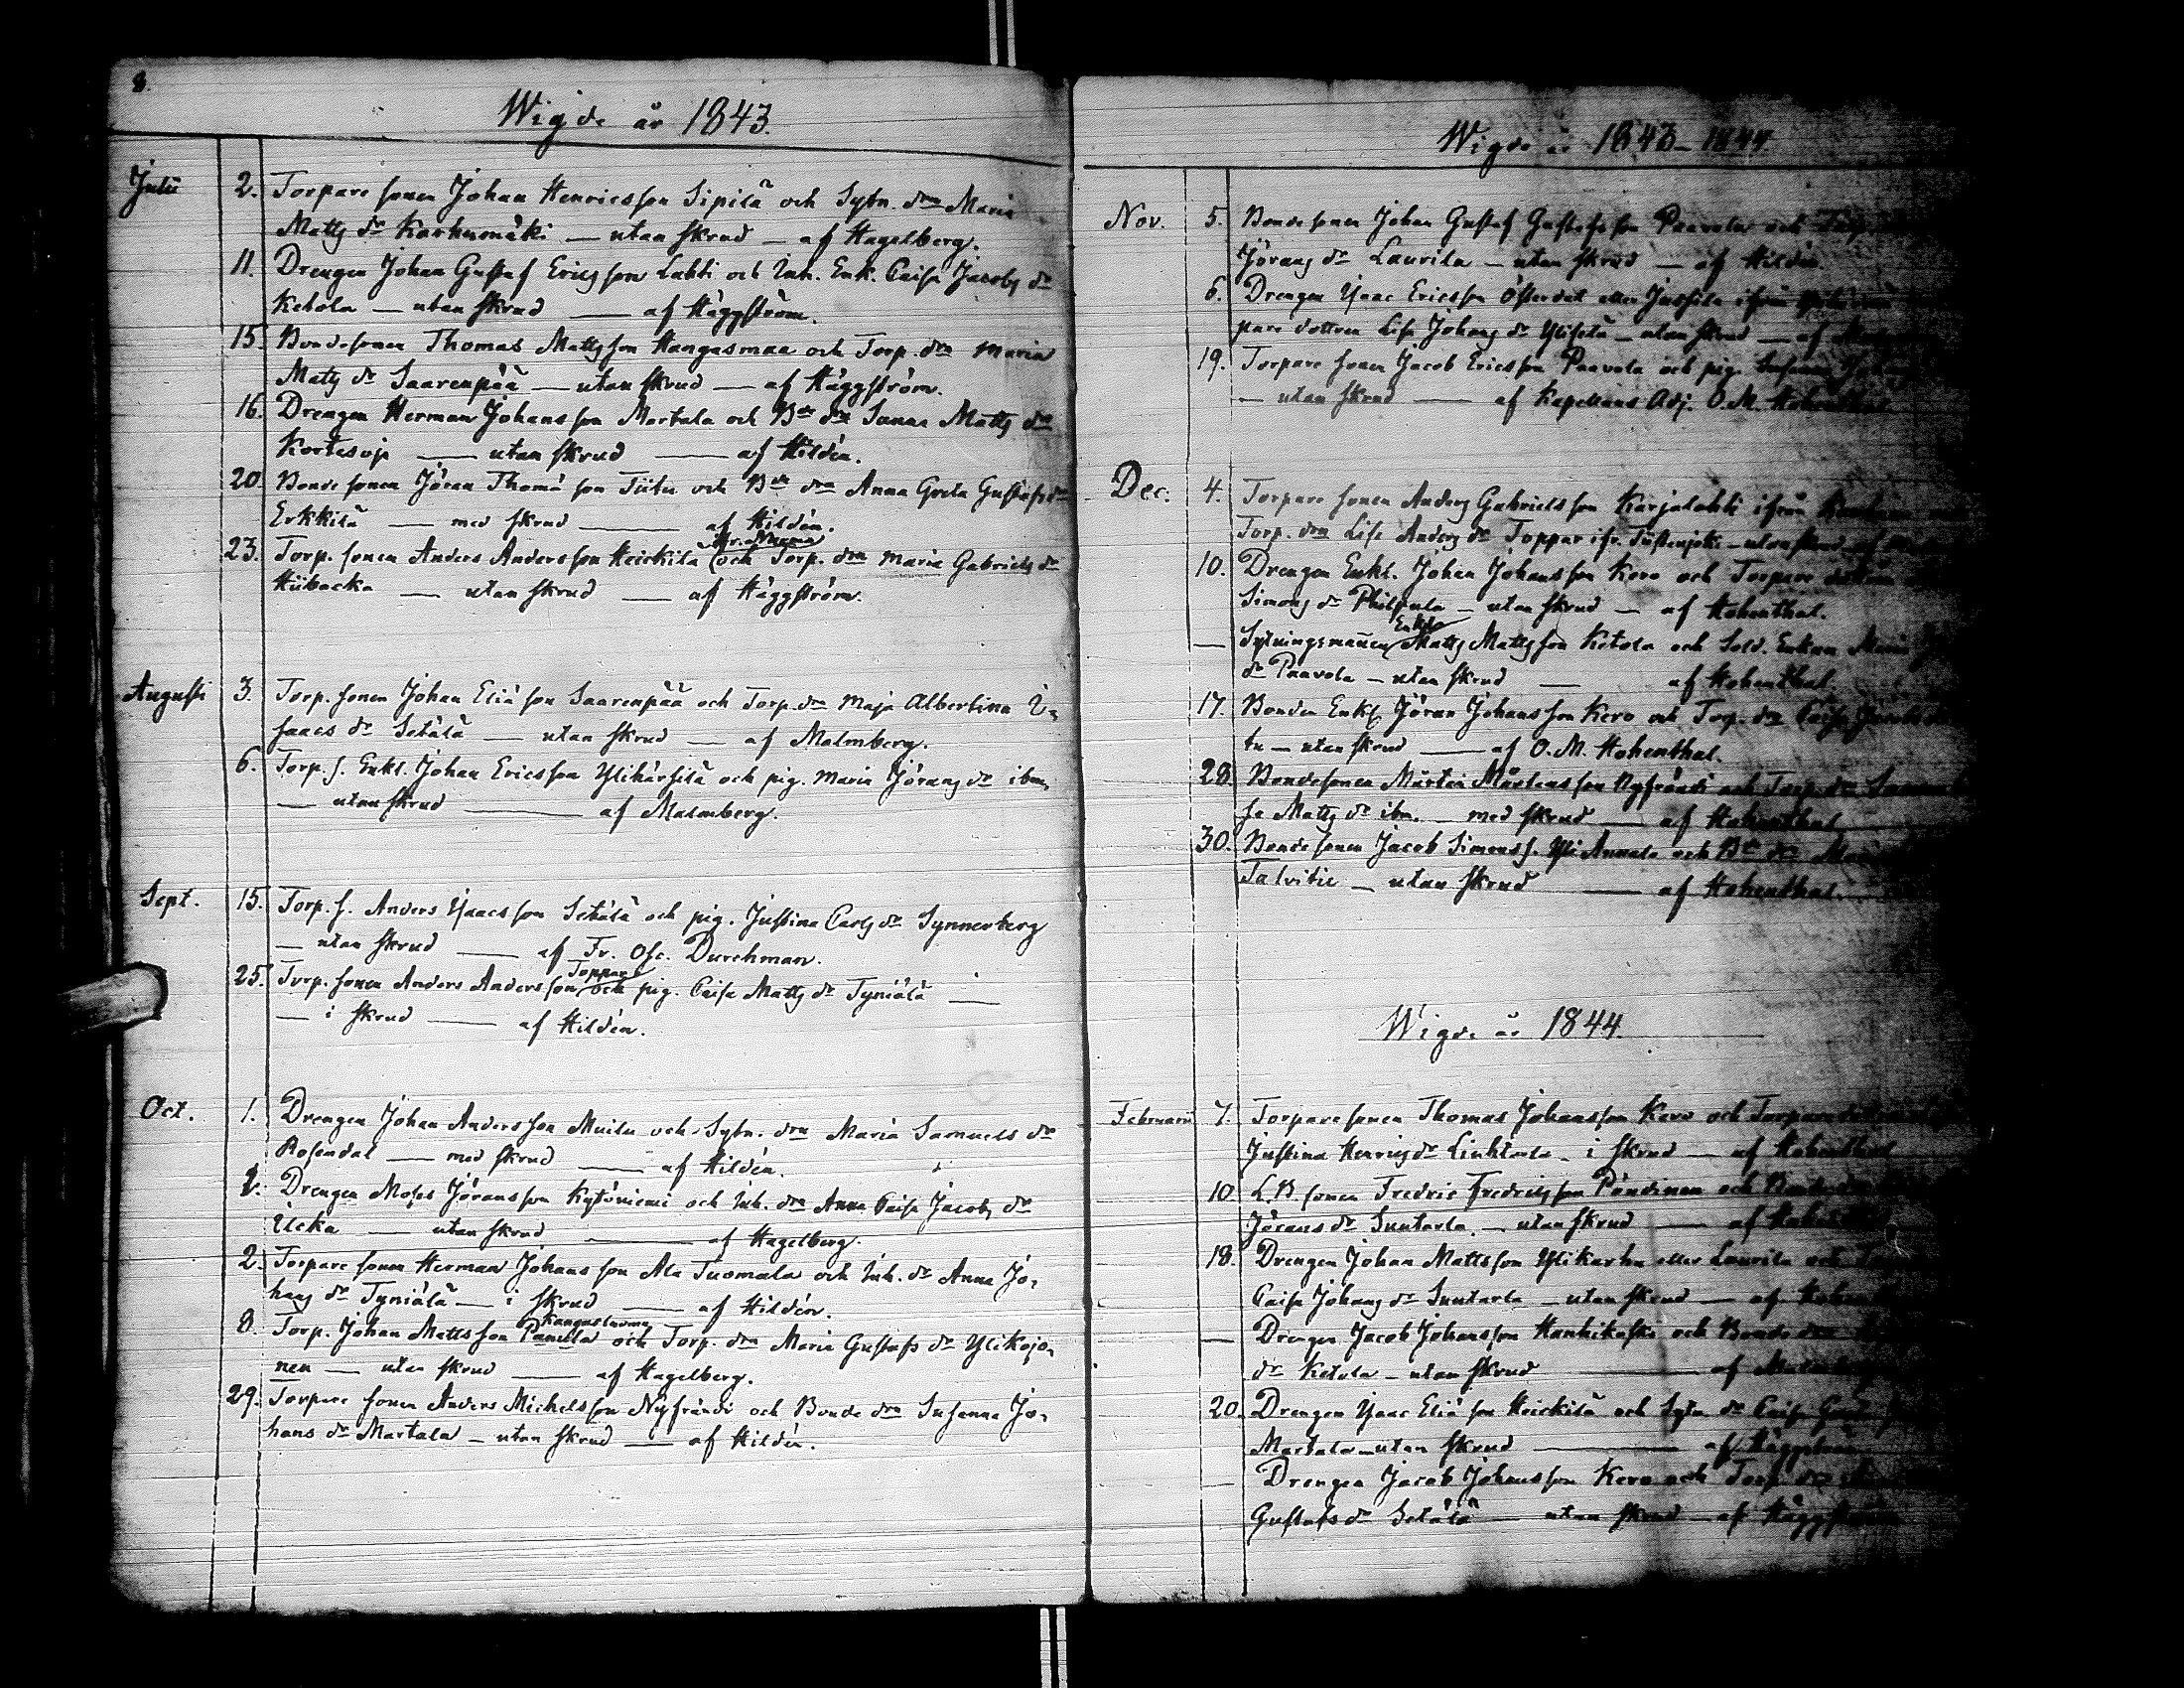 8.
Wigde år 1843.
Julii 2. Torpare sonen Johan Henricsson Sipilä och Sytn. drn Maria
Matts dr Karhumäki — utan skrud — af Hagelberg.
11. Drengen Johan Gustaf Ericsson Lahti och Inh. Enk. Caisa Jacobs dr
Ketola — utan skrud — af Häggström.
15. Bondesonen Thomas Mattsson Kangasmaa och Torp. drn Maria
Matts dr Saarenpää — utan skrud — af Häggström.
16. Drengen Herman Johansson Martala och Bde drn Sanna Matts dr
Kortesoja — utan skrud — af Hildén.
20. Bonde sonen Jöran Thomæson Tiitu och Bde drn Anna Greta Gustafs dr
Erkkilä — med skrud — af Hildén.
23. Torp. sonen Anders Andersson Heickilä och Torp. drn Maria Gabriels dr
Hiibacka — utan skrud — af Häggström.
Augusti 3. Torp. sonen Johan Eliæson Saarenpää och Torp. drn Maja Albertina I-
saacs dr Setälä — utan skrud — af Malmberg.
6. Torp. s. Enkl. Johan Ericsson Ylihärsilä och pig. Maria Jörans dr ibm.
— utan skrud — af Malmberg.
Sept. 15. Torp. s. Anders Isaacsson Setälä och pig. Justina Carls dr Synnerberg
— utan skrud — af Fr. Osc. Durchman.
25. Torp. sonen Anders Andersson Toppari och pig. Caisa Matts dr Tyniälä —
— i skrud — af Hildén.
Oct. 1. Drengen Johan Andersson Muilu och Sytn. drn Maria Samuels dr
Rosendal — med skrud — af Hildén.
2. Drengen Moses Jöransson Kytöniemi och Inh. drn Anna Caisa Jacobs dr
Ilcka — utan skrud — af Hagelberg.
2. Torpare sonen Herman Johansson Ala Tuomala och Inh. dr Anna Jo-
hans dr Tyniälä — i skrud — af Hildén.
8. Torp. Johan Mattsson Kangasluoma och Torp. drn Maria Gustafs dr Ylikojo-
nen — utan skrud — af Hagelberg.
29. Torpare sonen Anders Michelsson Nyfrändi och Bonde drn Susanna Jo-
hans dr Martala — utan skrud — af Hildén.
Wigde år 1843–1844
Nov. 5. Bondesonen Johan Gustaf Gustafsson Paavola och Torp.
Jörans dr Laurila — utan skrud — af Hildén.
6. Drengen Isaac Ericsson Österdal eller Jussila ifrån
pare dottren Lisa Johans dr Ylisetä — utan skrud — af
19. Torpare sonen Jacob Ericsson Paavola och pig. Susanna
— utan skrud — af Kapellans Adj. O. M. Hohenthal
Dec. 4. Torpare sonen Anders Gabrielsson Karjalahti ifrån
Torp. drn Lisa Anders dr Toppar ifr. Tiistenjoki — utan skrud — af
10. Drengen Enkl. Johan Johansson Kero och Torpare
Simons dr Philpula — utan skrud — af Hohenthal.
— Sytningsmannen Enkl. Matts Mattsson Ketola och Sold. Enkan Maria
dr Paavola — utan skrud — af Hohenthal.
17. Bonden Enkl. Jöran Johansson Kero och Torp. drn Caisa
tu — utan skrud — af O. M. Hohenthal.
28. Bondesonen Mårten Mårtensson Nyfrändi och Torp. drn
sa Matts dr ibm. — med skrud — af Hohenthal
30. Bonde sonen Jacob Simonss. Yli Annala och Bde drn Maria
Talvitie — utan skrud — af Hohenthal.
Wigde år 1844.
Februarii 7. Torparesonen Thomas Johansson Kero och Torpare
Justina Henrics dr Linhtala — i skrud — af Hohenthal
10. L.B. sonen Fredric Fredricsson Pöndinen och Bonde
Jörans dr Luutarla — utan skrud — af
18. Drengen Johan Mattsson Ylikarhu eller Laurila och
Caisa Johans dr Luutarla — utan skrud — af
— Drengen Jacob Johansson Hanhikoski och Bonde drn
dr Ketola — utan skrud — af
20. Drengen Isaac Eliæson Heickilä och Sytn. dr Caisa
Martala — utan skrud — af Häggström
— Drengen Jacob Johansson Kero och Torp. drn
Gustafs dr Setälä — utan skrud — af Häggström